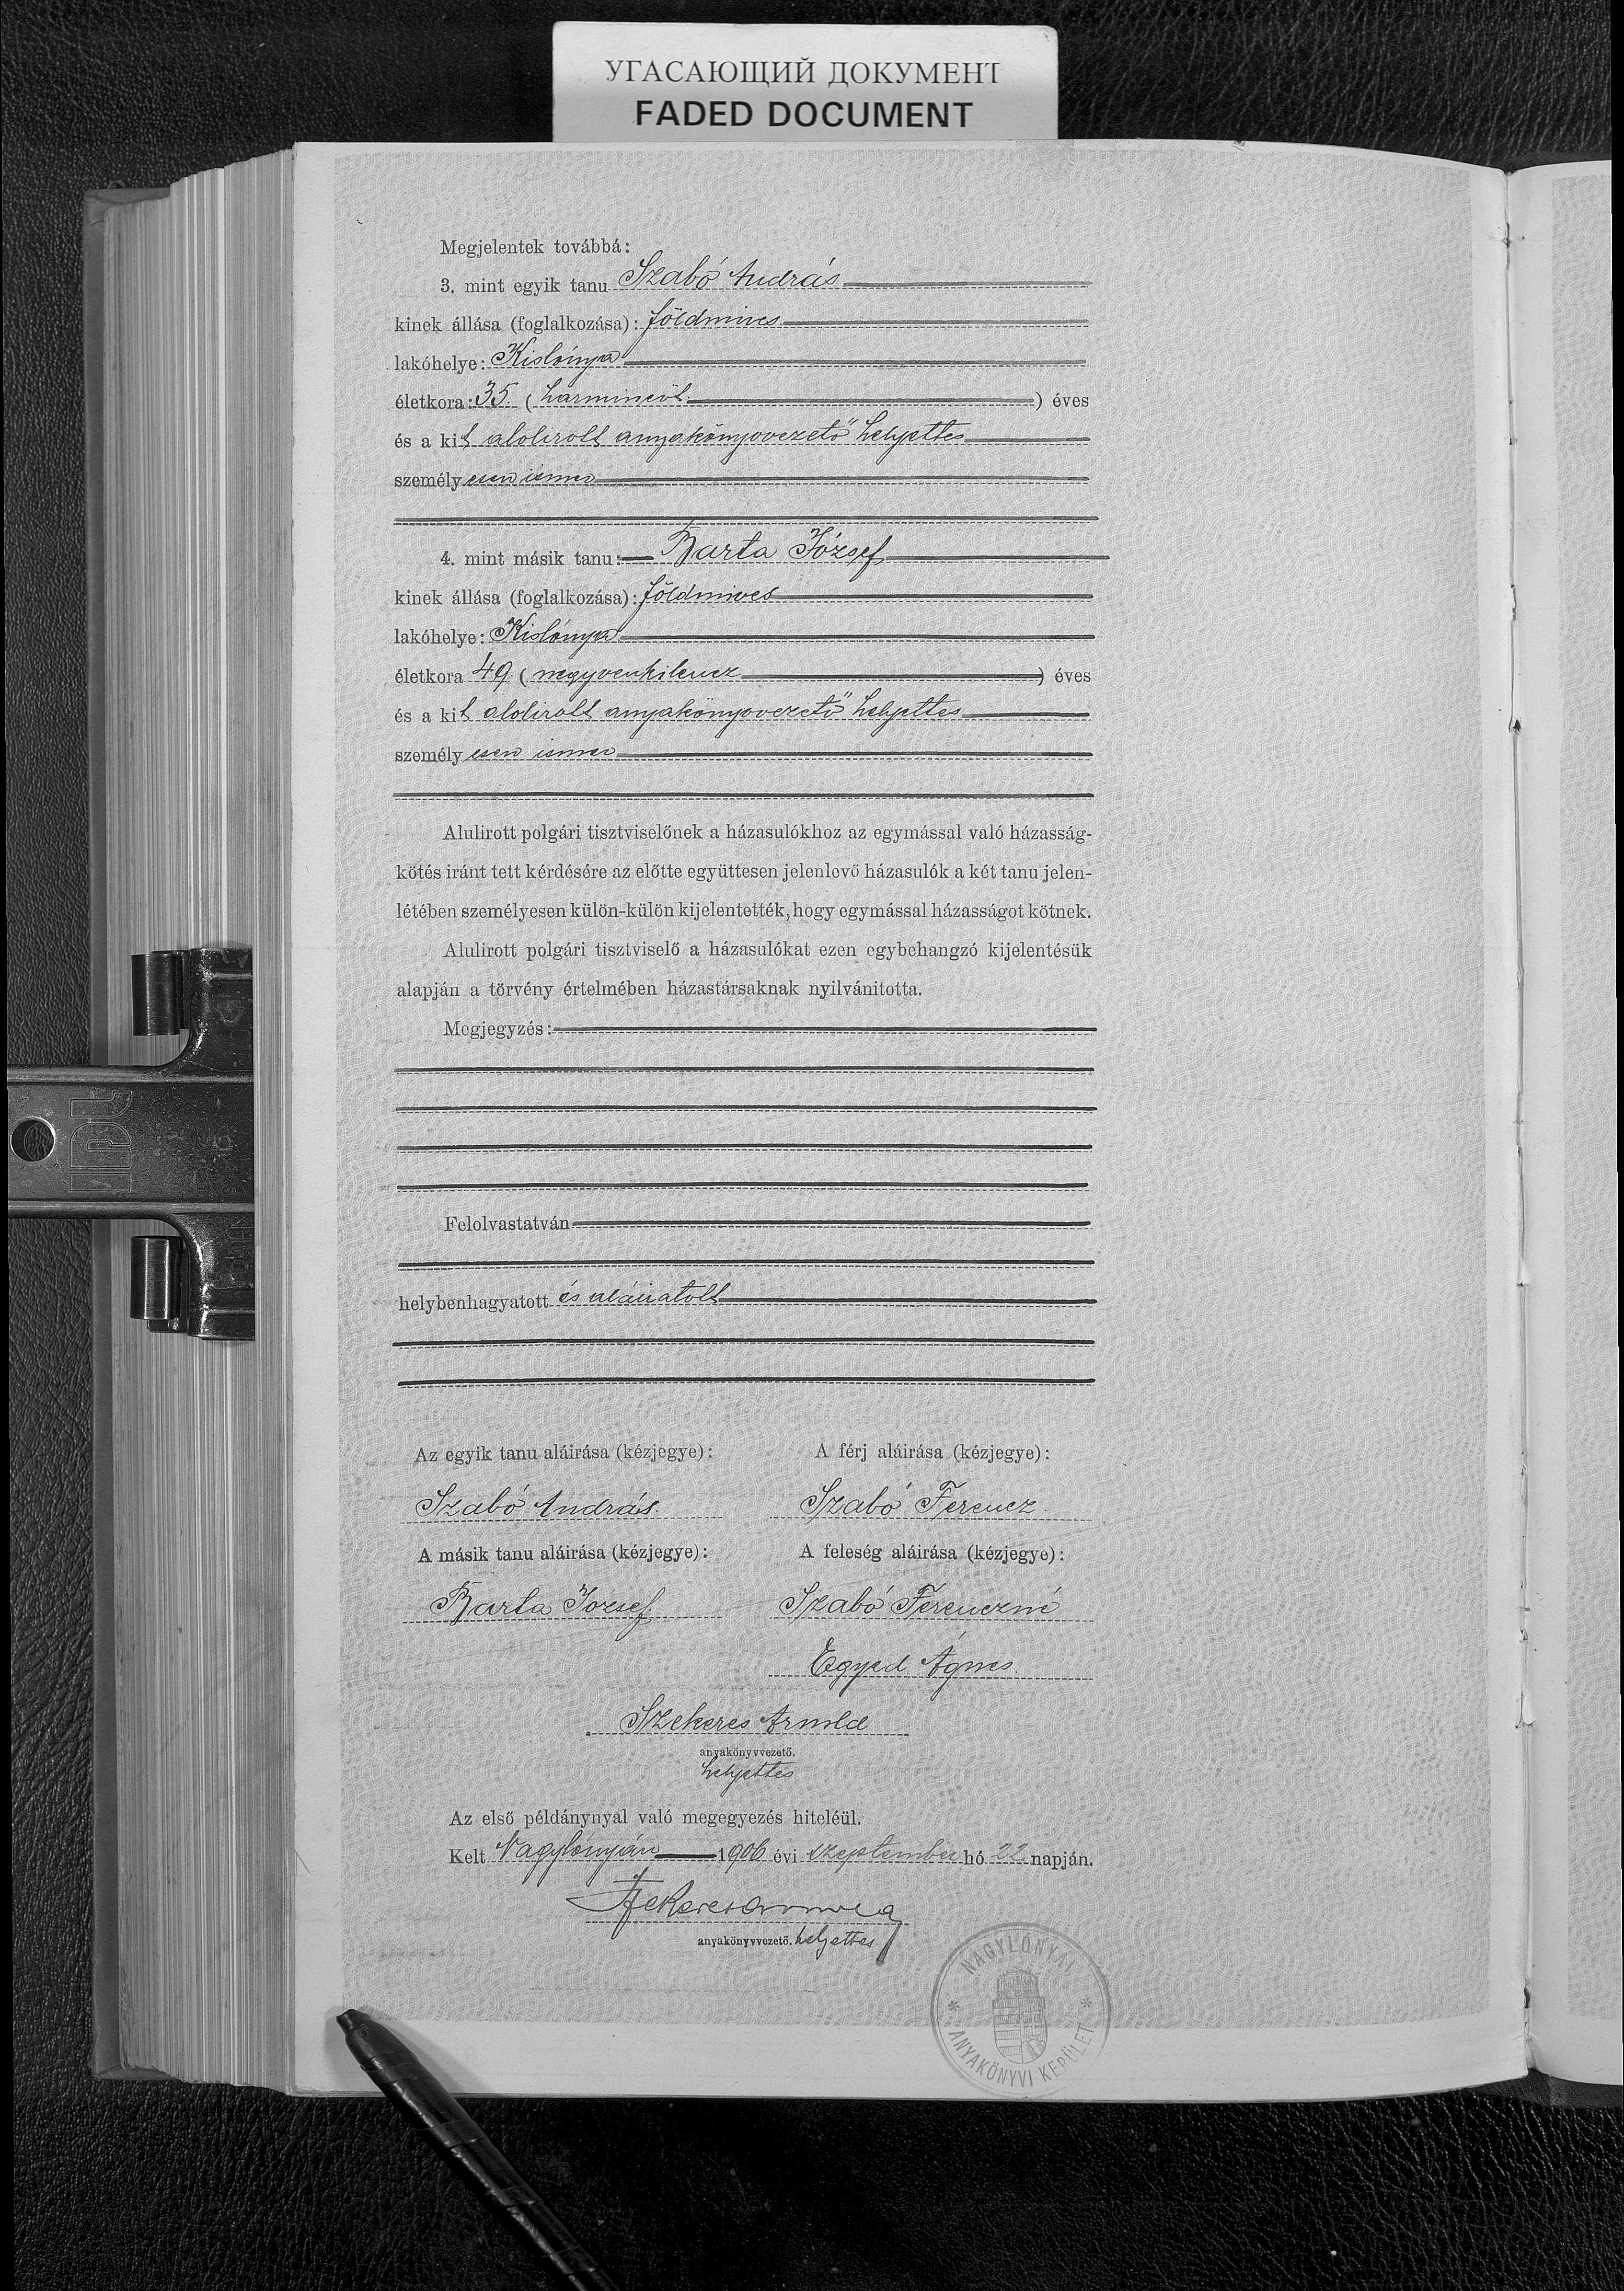 УГАСАЮЩИЙ ДОКУМЕНТ
FADED DOCUMENT
Megjelentek továbbá:
3. mint egyik tanu Szabó András
kinek állása (foglalkozása): földmives
lakóhelye: Kislónya
életkora: 35. (harmincöt) éves
és a kit alolirott anyakönyvvezető helyettes
személyesen ismer
4. mint másik tanu: Barta József
kinek állása (foglalkozása): földmives
lakóhelye: Kislónya
életkora 49 (negyvenkilencz) éves
és a kit alolirott anyakönyvvezető helyettes
személyesen ismer
Alulirott polgári tisztviselőnek a házasulókhoz az egymással való házasság-
kötés iránt tett kérdésére az előtte együttesen jelenlevő házasulók a két tanu jelen-
létében személyesen külön-külön kijelentették, hogy egymással házasságot kötnek.
Alulirott polgári tisztviselő a házasulókat ezen egybehangzó kijelentésük
alapján a törvény értelmében házastársaknak nyilvánitotta.
Megjegyzés:
Felolvastatván
helybenhagyatott és aláiratott
Az egyik tanu aláirása (kézjegye): A férj aláirása (kézjegye):
Szabó András. Szabó Ferencz
A másik tanu aláirása (kézjegye): A feleség aláirása (kézjegye):
Barta József Szabó Ferenczné
Egyed Ágnes
Szekeres Arnold
anyakönyvvezető.
helyettes
Az első példánynyal való megegyezés hiteléül.
Kelt Nagylónyán 1906 évi szeptember hó 22 napján.
Szekeres Arnold
anyakönyvvezető. helyettes
NAGYLÓNYAI
* ANYAKÖNYVI KERÜLET *